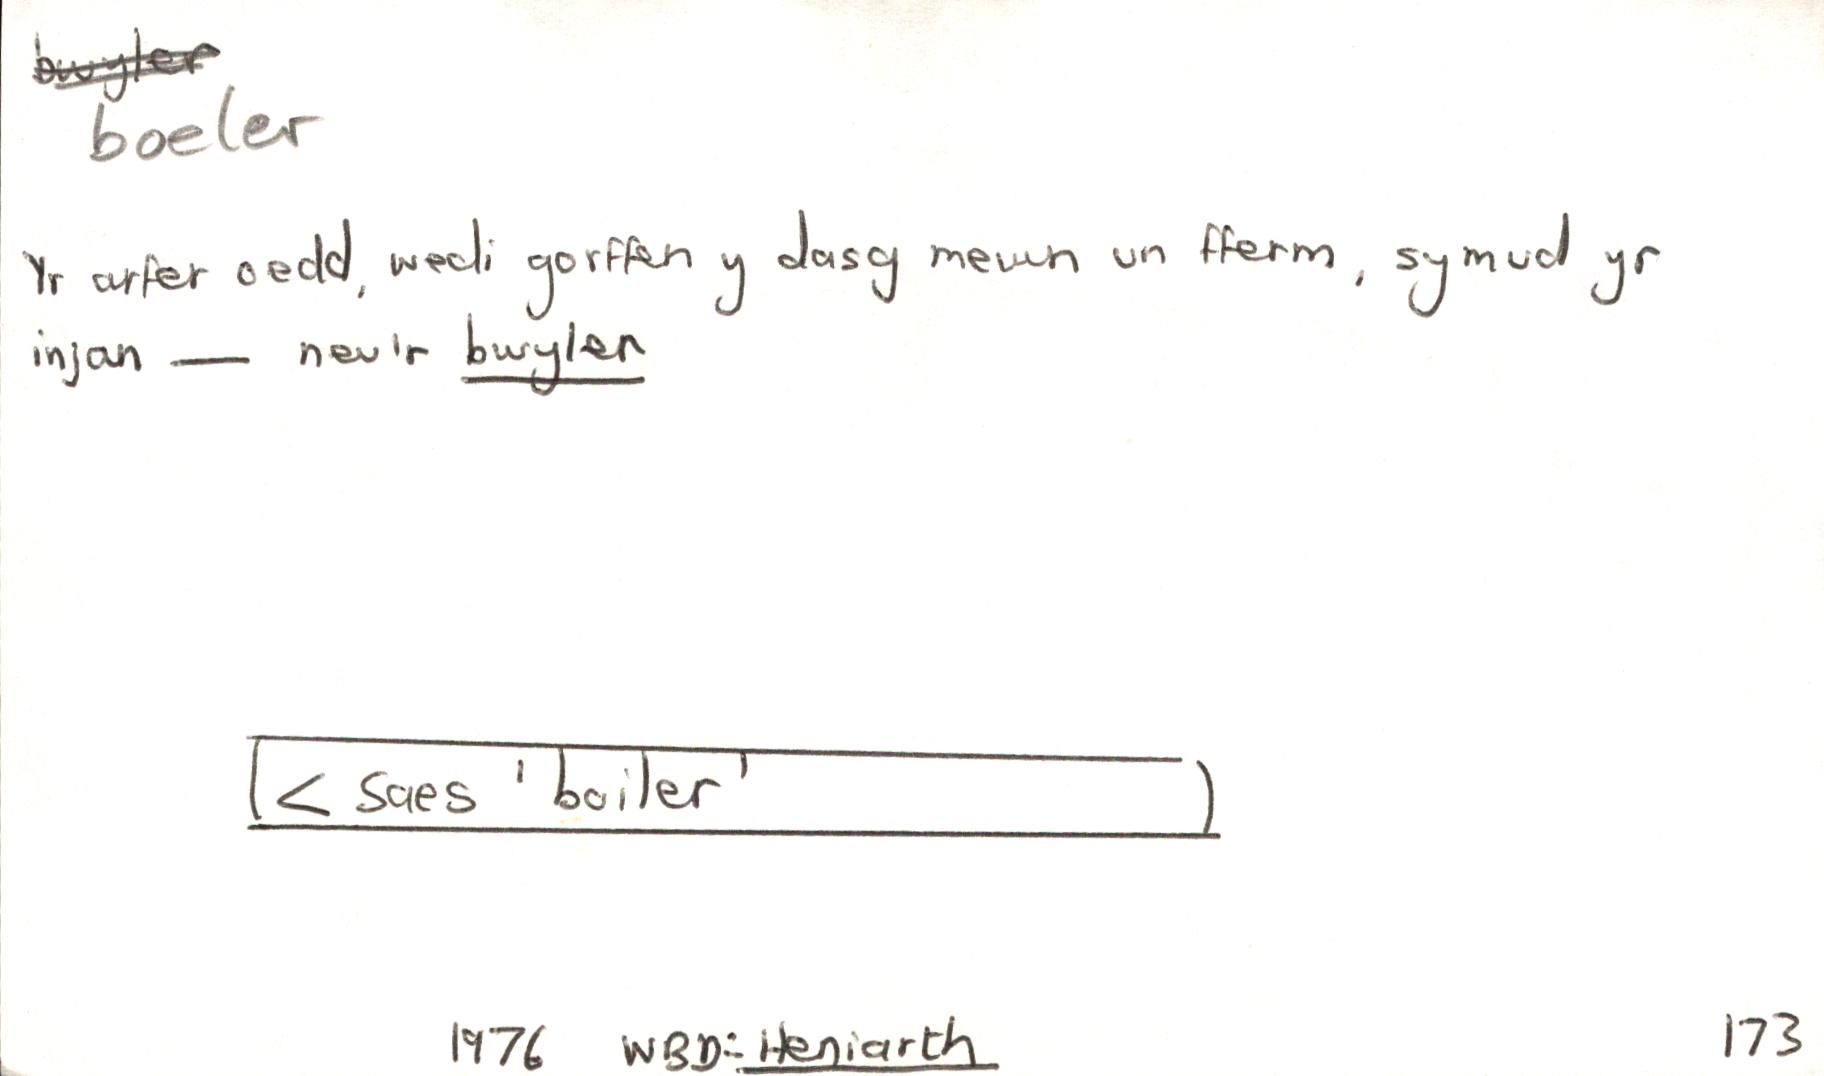 bwyler
boeler
Yr arfer oedd, wedi gorffen y dasg mewn un fferm, symud yr
injan — neu'r bwyler
(< saes 'boiler' )
1976 WBD: Heniarth 173